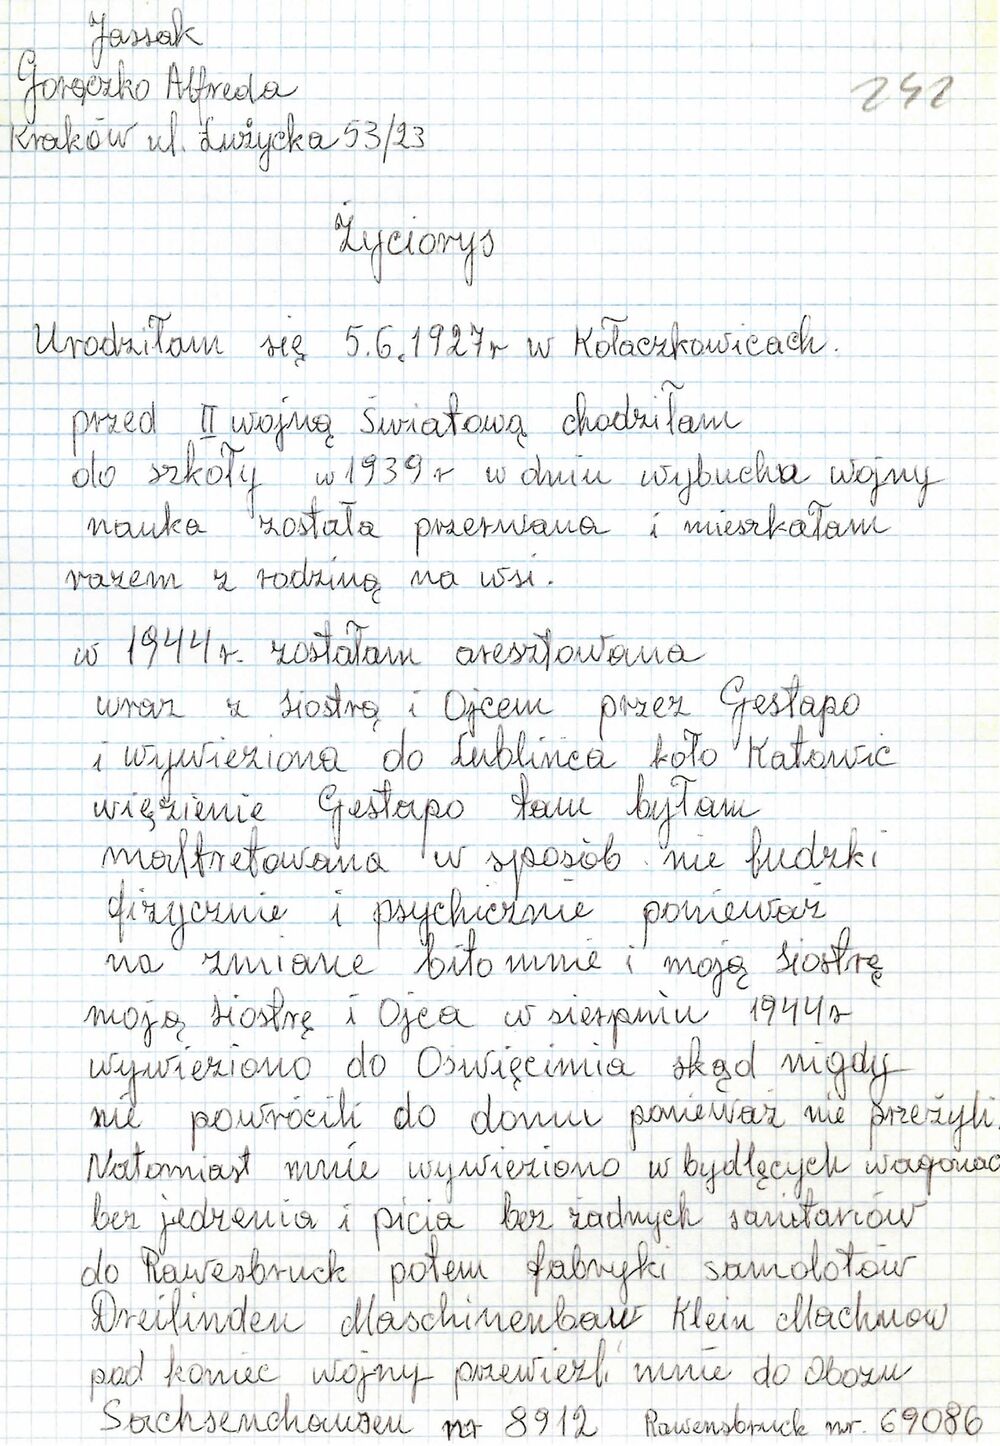 Jassak
Gorączko Alfreda
242
Kraków ul. Łużycka 53/23
Życiorys
Urodziłam się 5.6.1927r w Kołaczkowicach.
przed II wojną Światową chodziłam
do szkoły w 1939r w dniu wybucha wojny
nauka została przerwana i mieszkałam
razem z rodziną na wsi.
w 1944r. zostałam aresztowana
wraz z siostrą i Ojcem przez Gestapo
i wywieziona do Lublińca koło Katowic
więzienie Gestapo tam byłam
maltretowana w sposób nie ludzki
fizycznie i psychicznie ponieważ
na zmiane bito mnie i moją siostrę
moją siostrę i Ojca w sierpniu 1944r
wywieziono do Oświęcimia skąd nigdy
nie powrócili do domu ponieważ nie przeżyli.
Natomiast mnie wywieziono w bydlęcych wagonac
bez jedzenia i picia bez żadnych sanitariów
do Rawesbruck potem fabryki samolotów
Dreilinden Maschinenbaw Klein Machnow
pod koniec wojny przewieźli mnie do Obozu
Sachsenchausen nr 8912 Rawensbruck nr. 69086